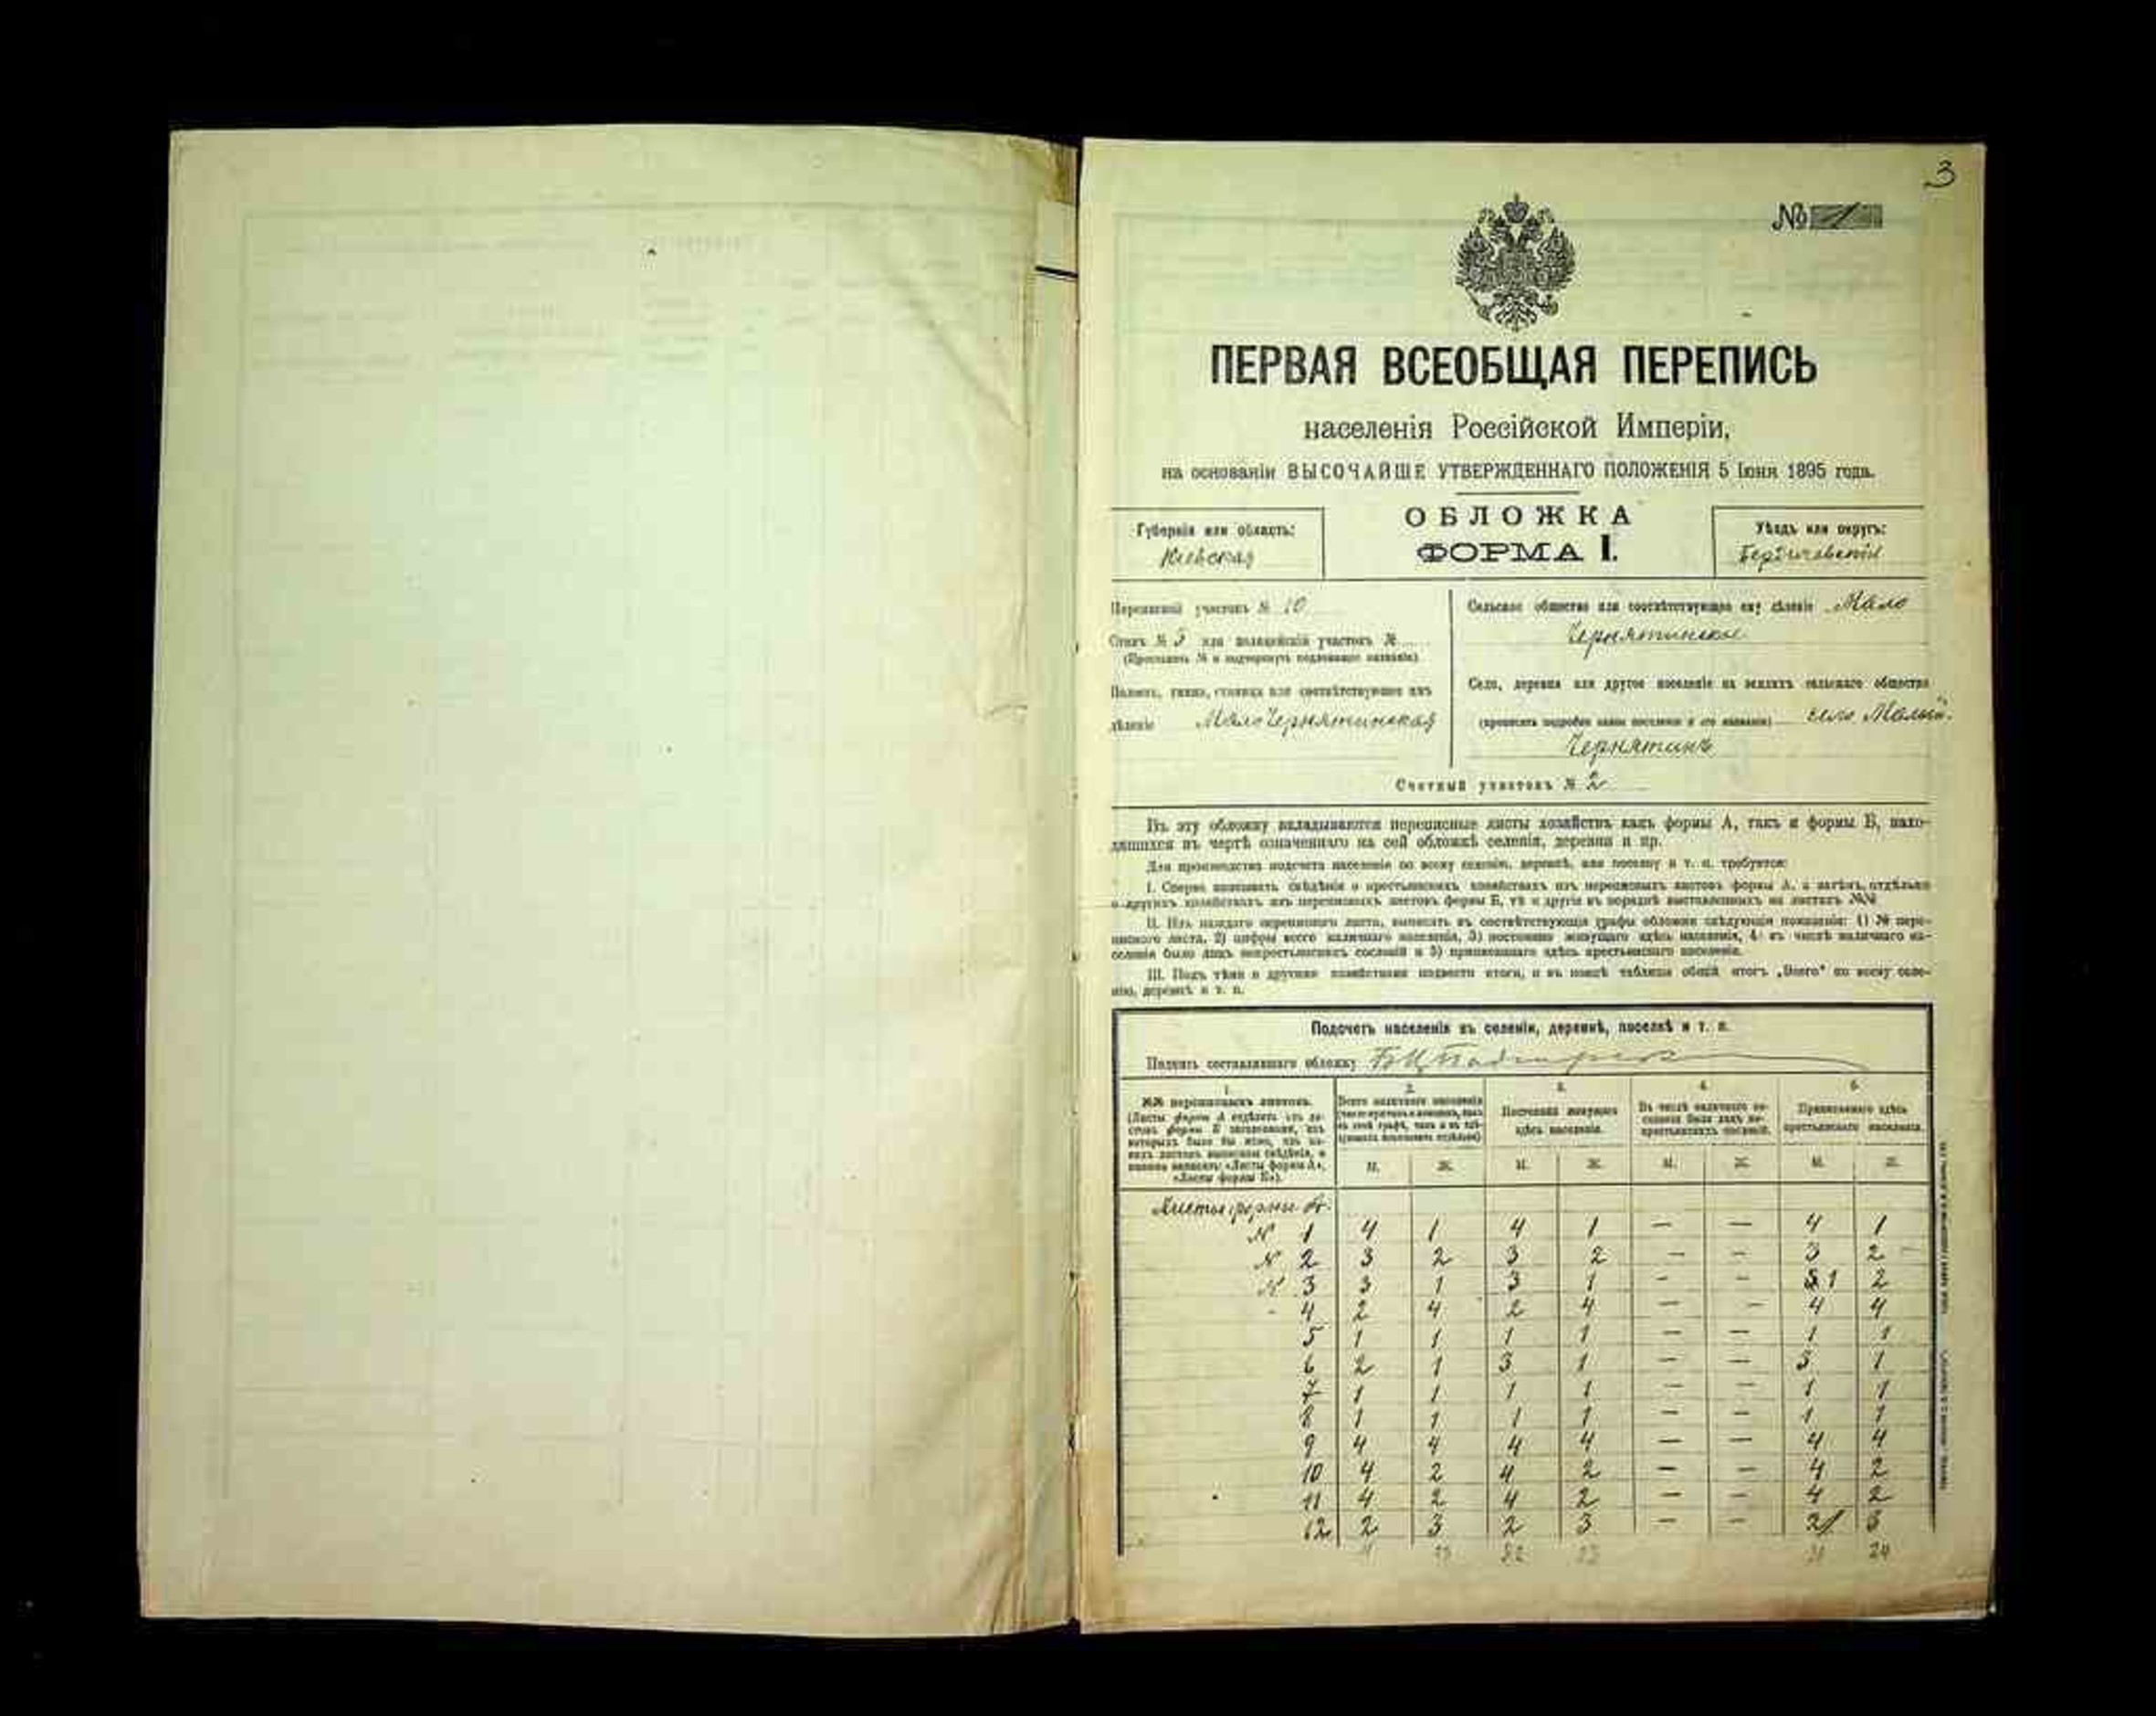 3
№ 1
ПЕРВАЯ ВСЕОБЩАЯ ПЕРЕПИСЬ
населенія Россійской Имперіи,
на основаніи ВЫСОЧАЙШЕ УТВЕРЖДЕННАГО ПОЛОЖЕНІЯ 5 Іюня 1895 года.
ОБЛОЖКА
ФОРМА I.
Губернія или область:
Кіевская
Уѣздъ или округъ:
Бердичевскій
Переписной участокъ № 10
Станъ № 5 или полицейскій участокъ №
(Проставить № и подчеркнуть подлежащее названіе)
Волость, гмина, станица или соотвѣтствующее имъ
дѣленіе МалоЧернятинская
Сельское общество или соотвѣтствующее ему дѣленіе Мало
Чернятинское
Село, деревня или другое поселеніе на земляхъ сельскаго общества
(прописать подробно какое поселеніе и его названіе) село Малый
Чернятинъ
Счетный участокъ № 2
Въ эту обложку вкладываются переписные листы хозяйствъ какъ формы А, такъ и формы Б, нахо-
дящихся въ чертѣ означеннаго на сей обложкѣ селенія, деревни и пр.
Для производства подсчета населенія по всему селенію, деревнѣ, или поселку и т. п. требуется:
I. Сперва выписать свѣдѣнія о крестьянскихъ хозяйствахъ изъ переписныхъ листовъ формы А, а затѣмъ отдѣльно
о другихъ хозяйствахъ изъ переписныхъ листовъ формы Б, тѣ и другіе въ порядкѣ выставленныхъ на листахъ №№
II. Изъ каждаго переписного листа, выписать въ соотвѣтствующія графы обложки слѣдующія показанія: 1) № пере-
писного листа, 2) цифры всего наличнаго населенія, 3) постоянно живущаго здѣсь населенія, 4) въ числѣ наличнаго на-
селенія было лицъ некрестьянскихъ сословій и 5) приписаннаго здѣсь крестьянскаго населенія.
III. Подъ тѣми и другими хозяйствами подвести итоги, и въ концѣ таблицы общій итогъ „Всего“ по всему селе-
нію, деревнѣ и т. п.
Подсчетъ населенія въ селеніи, деревнѣ, поселкѣ и т. п.
Подпись составлявшаго обложку
1. 2. 3. 4. 5.
№№ переписныхъ листовъ.
(Листы формы А отдѣлить отъ ли-
стовъ формы Б заголовками, изъ
которыхъ было бы ясно, изъ ка-
кихъ листовъ выписаны свѣдѣнія, а
именно написать: «Листы формы А»,
«Листы формы Б»).
Всего наличнаго населенія
Постоянно живущаго
здѣсь населенія.
Въ числѣ наличнаго на-
селенія было лицъ не-
крестьянскихъ сословій.
Приписаннаго здѣсь
крестьянскаго населенія.
М. Ж. М. Ж. М. Ж. М. Ж.
Листы формы А.
№ 1 4 1 4 1 — — 4 1
№ 2 3 2 3 2 — — 3 2
№ 3 3 1 3 1 — — 1 2
4 2 4 2 4 — — 4 4
5 1 1 1 1 — — 1 1
6 2 1 3 1 — — 3 1
7 1 1 1 1 — — 1 1
8 1 1 1 1 — — 1 1
9 4 4 4 4 — — 4 4
10 4 2 4 2 — — 4 2
11 4 2 4 2 — — 4 2
12 2 3 2 3 — — 2 3
32 23 24